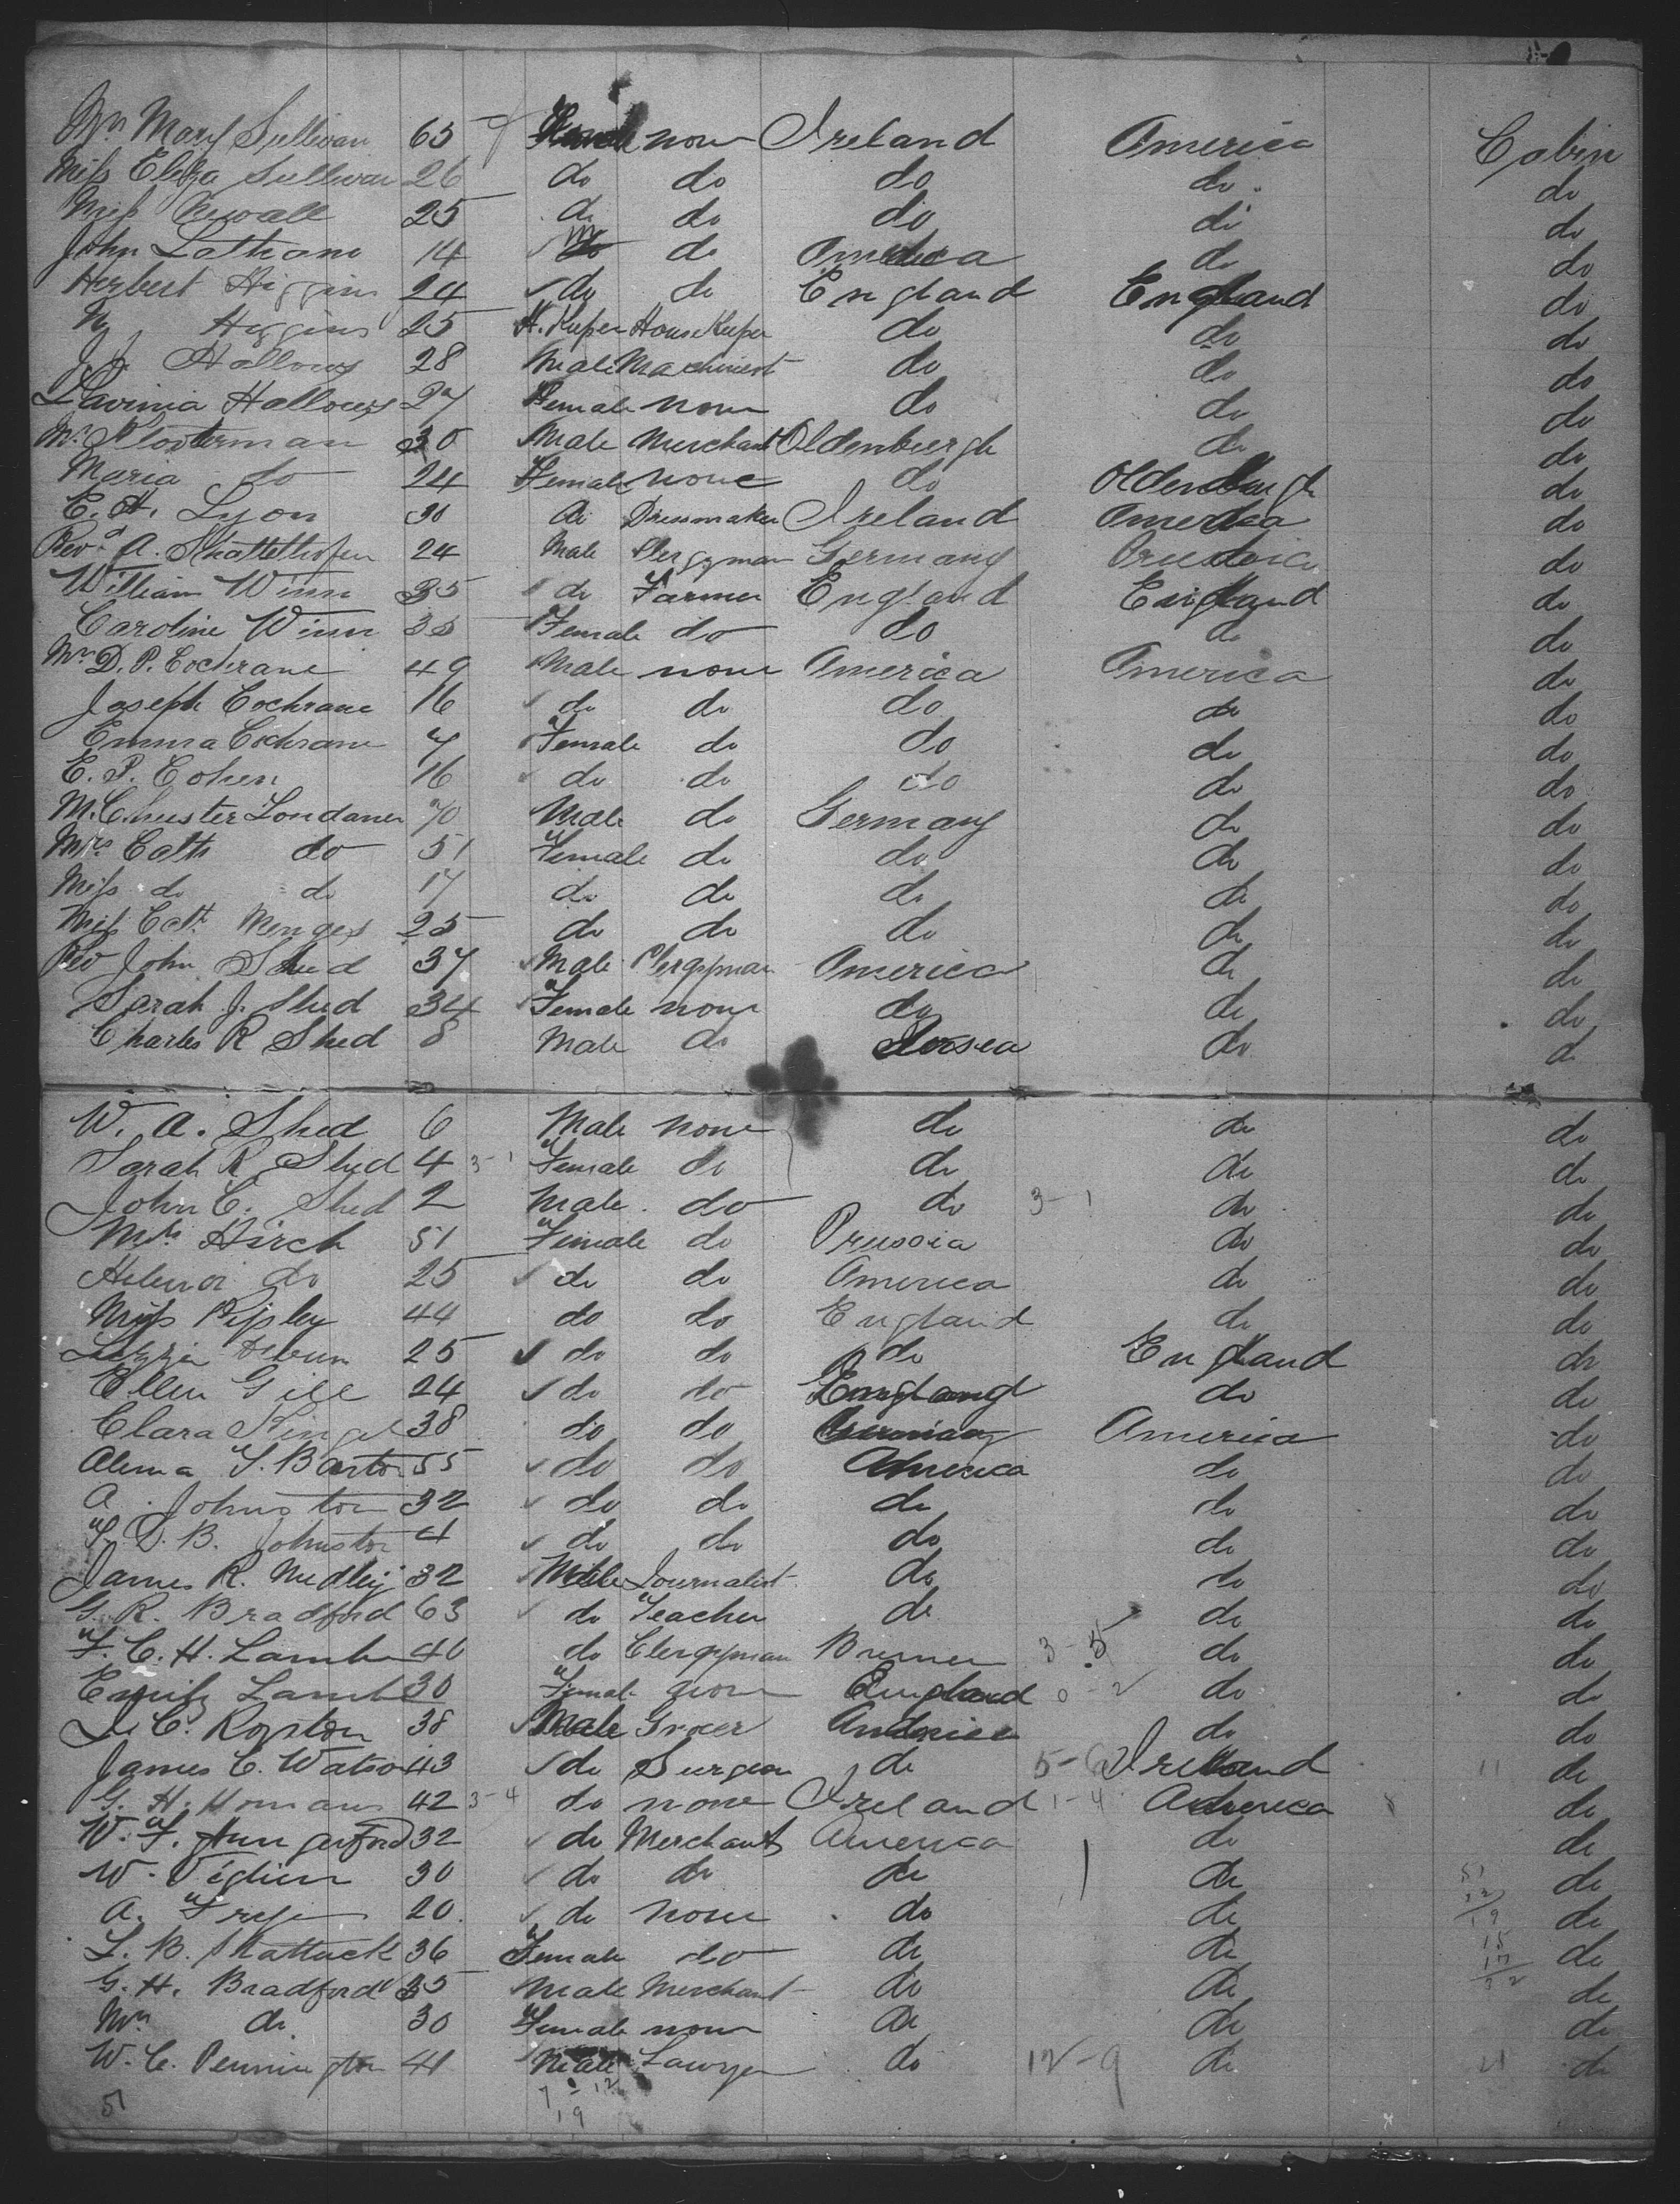 Mrs Mary Sullivan 65 none Ireland America Cabin
Miss Eliza Sullivan 26 do do do do do
Miss Newall 25 do do do do do
John Latham 14 M do America do do
Herbert Higgins 24 do do England England do
Higgins 25 H. Keeper House Keeper do do do
J. J. Hallows 28 Male Machinist do do do
Lavinia Hallows 27 Female none do do do
Mr Klosterman 30 Male Merchant Oldenburgh do do
Maria do 24 Female none do Oldenburgh do
E. H. Lyon 30 do Dressmaker Ireland America do
Revd A. 24 Male Clergyman Germany Prussia do
William Winn 35 do Farmer England England do
Caroline Winn 35 Female do do do do
Mr D. P. Cochrane 49 Male none America America do
Joseph Cochrane 16 do do do do do
Emma Cochrane 7 Female do do do do
E. P. Cohen 16 do do do do do
M. Chuster Londaner 70 Male do Germany do do
Mrs Cath do 51 Female do do do do
Miss do do 17 do do do do do
Miss Cath. Menges 25 do do do do do
Rev John Shed 37 Male Clergyman America do do
Sarah J. Shed 34 Female none do do do
Charles R Shed 8 Male do do do
W. A. Shed 6 Male none do do do
Sarah R Shed 4 3-1 Female do do do do
John C. Shed 2 Male do do 3-1 do do
Mrs Hirch 51 Female do Prussia do do
Helena do 25 do do America do do
Miss Ripley 44 do do England do do
Lizzie 25 do do do England do
Ellen Gill 24 do do England do do
Clara 38 do do Germany America do
Alema F. Barton 55 do do America do do
A. Johnston 32 do do do do do
F. D. B. Johnston 4 do do do do do
James R. Medley 32 Male Journalist do do do
G. R. Bradford 63 do Teacher do do do
F. C. H. Lamb 40 do Clergyman Bremen 3-5 do do
Emily Lamb 30 Female none England 0-2 do do
J. C. Royston 38 Male Grocer America do do
James C. Watson 43 do Surgeon do 5-6 Ireland 11 do
G. H. Homans 42 3-4 do none Ireland 1-4 America do
W. F. Hungerford 32 do Merchant America do do
W. 30 do do do do do
A. Frye 20 do none do do do
L. B. Shattuck 36 Female do do do do
G. H. Bradford 35 Male Merchant do do do
Mrs do 30 Female none do do do
W. C. Pennington 41 Male Lawyer do 12-9 do 21 do
51 7-12
19